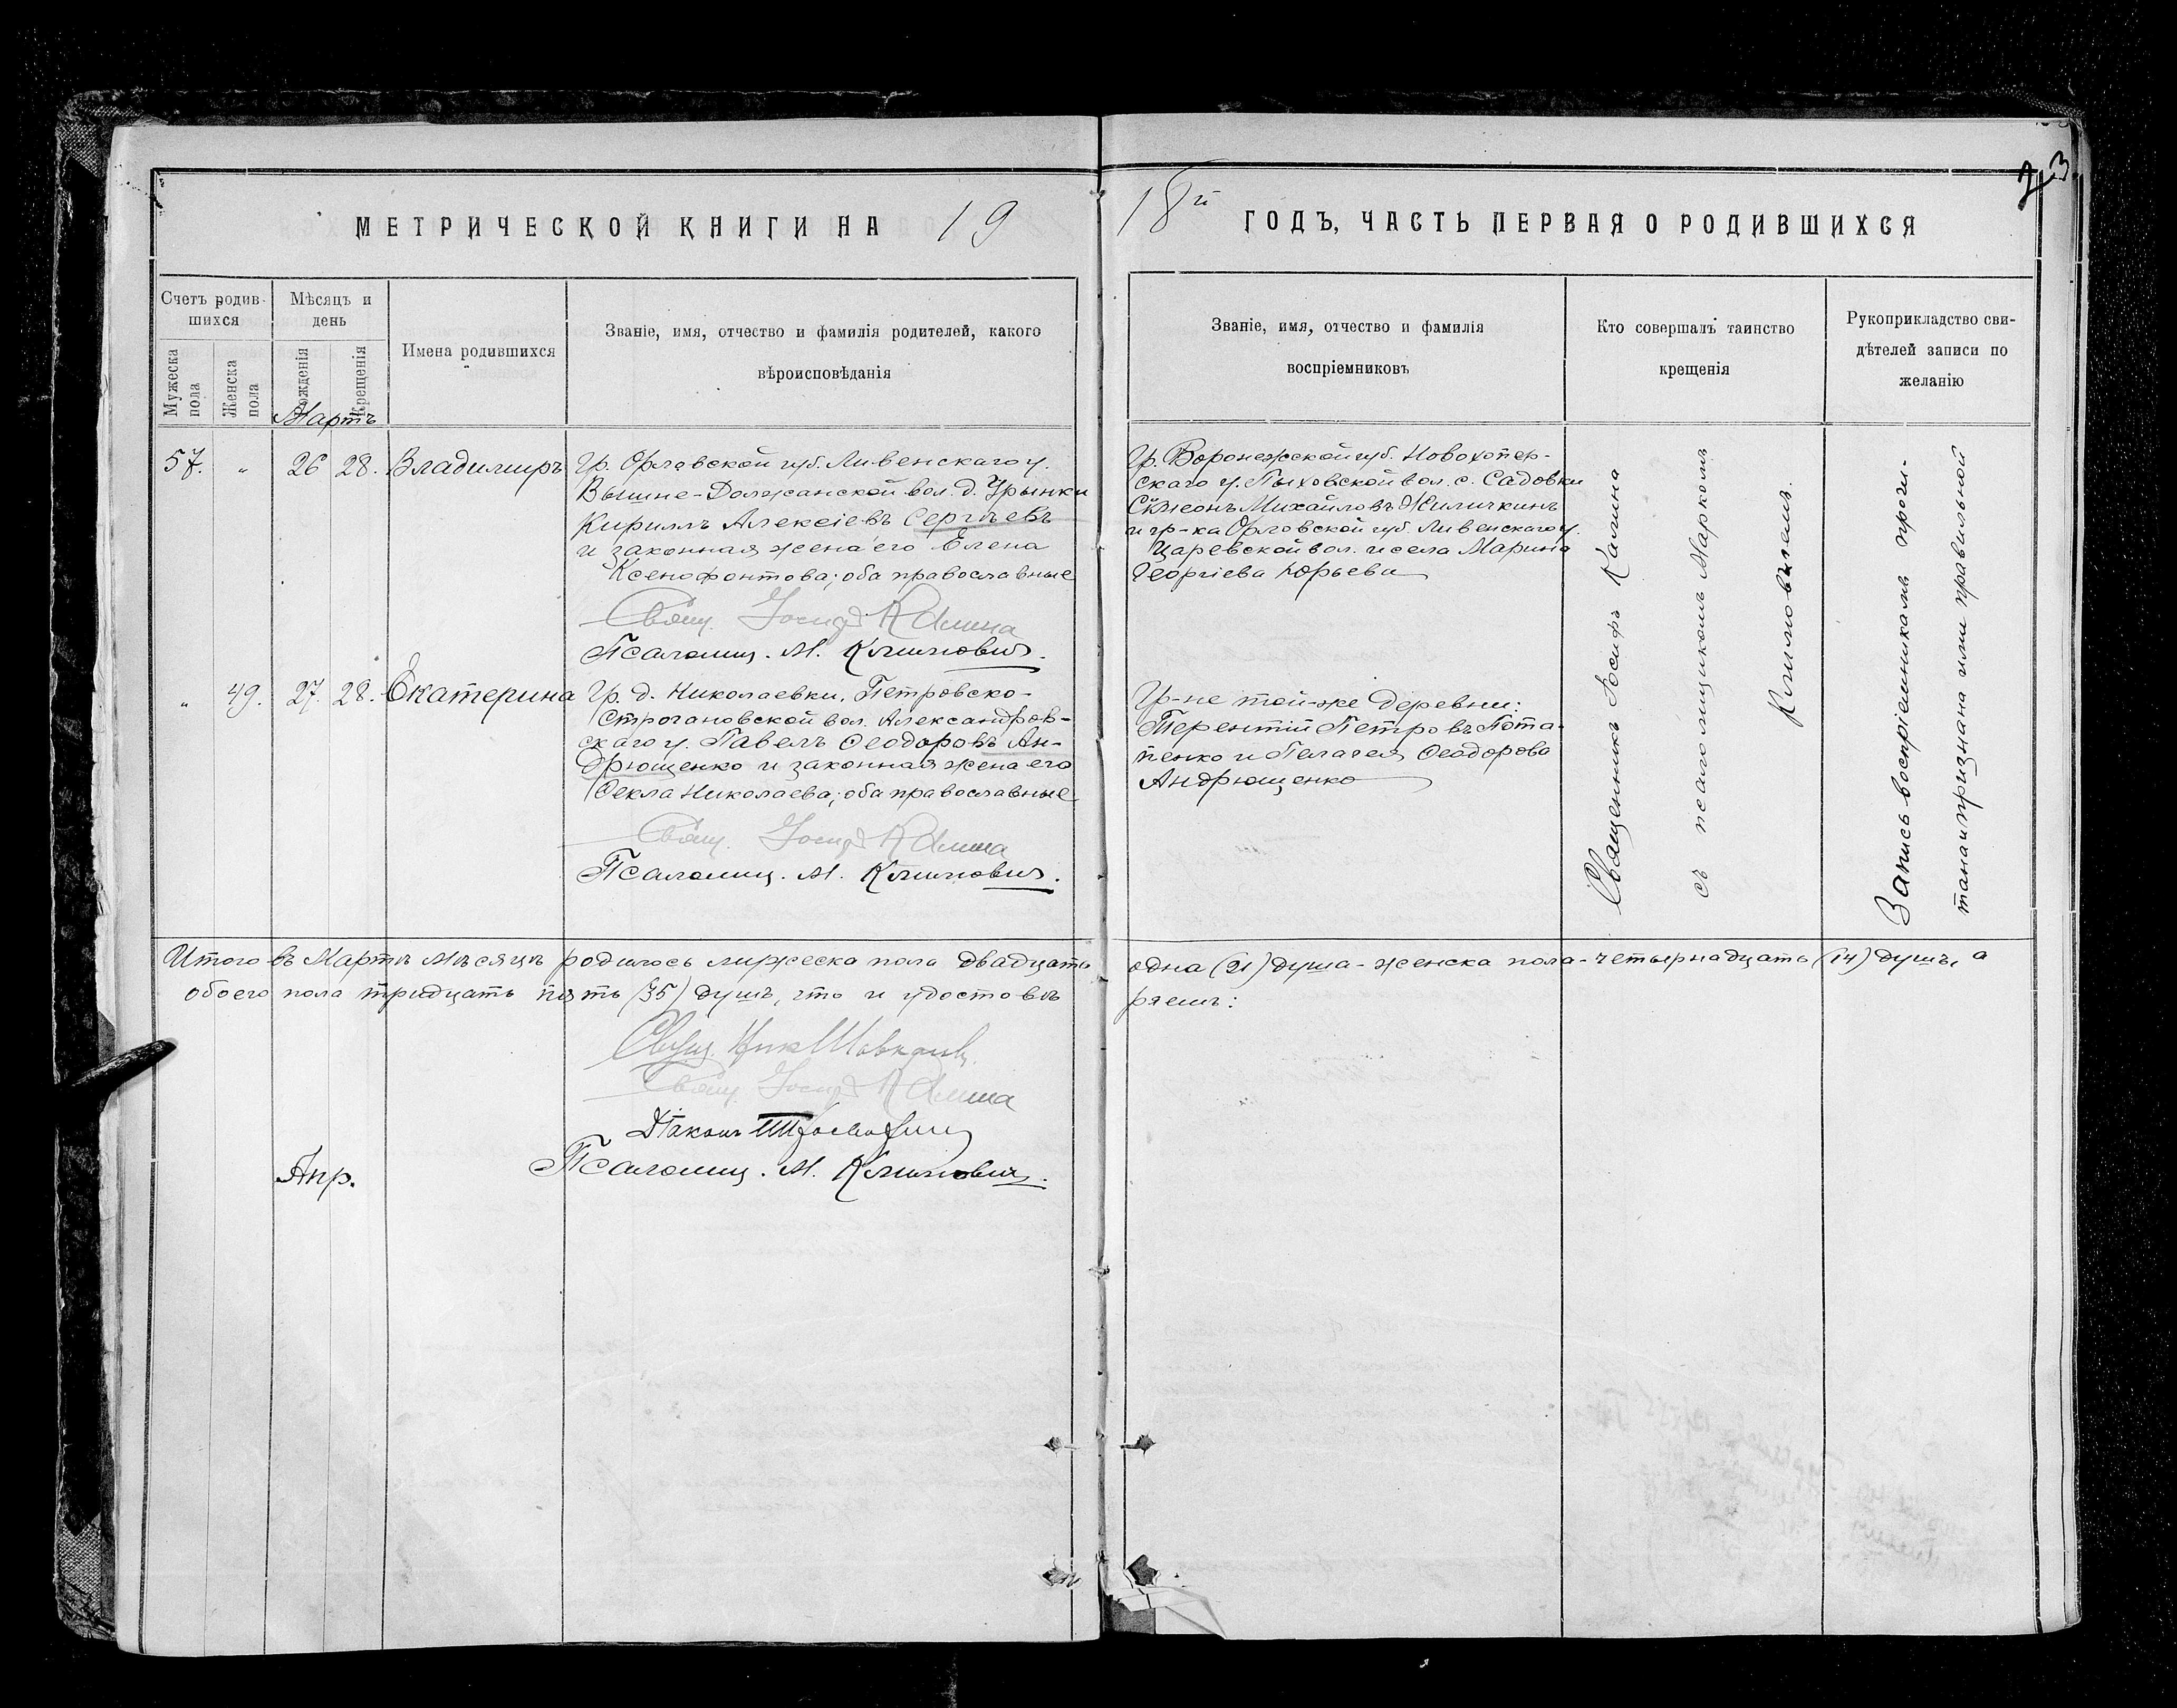 23
МЕТРИЧЕСКОЙ КНИГИ НА 19
18й ГОДЪ, ЧАСТЬ ПЕРВАЯ О РОДИВШИХСЯ
Счетъ родив-
шихся
Мужеска
пола
Женска
пола
Мѣсяцъ и
день
Рожденія
Крещенія
Имена родившихся
Званіе, имя, отчество и фамилія родителей, какого
вѣроисповѣданія
Званіе, имя, отчество и фамилія
воспріемниковъ
Кто совершалъ таинство
крещенія
Рукоприкладство сви-
дѣтелей записи по
желанію
Мартъ
57. „ 26 28. Владимиръ
Гр. Орловской губ. Ливенскаго у.
Вышне-Должанской вол. д. Грынки
Кириллъ Алексіевъ Сергѣевъ
и законная жена его Елена
Ксенофонтова; оба православные
Свящ. Іосифъ Калина
Псаломщ. М. Климовичъ.
Гр. Воронежской губ. Новохопер-
скаго у. Пыховской вол. с. Садовки
Сѵмеонъ Михайловъ Жиличкинъ
и гр-ка Орловской губ. Ливенскаго у.
Царевской вол. и села Марина
Георгіева Юрьева
„ 49. 27. 28. Екатерина
Гр. д. Николаевки, Петровско-
Строгановской вол. Александров-
скаго у. Павелъ Ѳеодоровъ Ан-
дрющенко и законная жена его
Ѳекла Николаева; оба православные
Свящ. Іосифъ Калина
Псаломщ. М. Климовичъ.
Гр-не той-же деревни:
Терентій Петровъ Пота-
пенко и Пелагея Ѳеодорова
Андрющенко
Священникъ Іосифъ Калина
съ псаломщикомъ Маркомъ
Климовичемъ.
Запись воспріемниками прочи-
тана и признана ими правильной
Итого въ Мартѣ мѣсяцѣ родилось мужеска пола двадцать одна (21) душа - женска пола - четырнадцать (14) душъ, а
обоего пола тридцать пять (35) душъ, что и удостовѣ ряемъ:
Свящ. Ник.
Свящ. Іосифъ Калина
Діаконъ
Псаломщ. М. Климовичъ.
Апр.